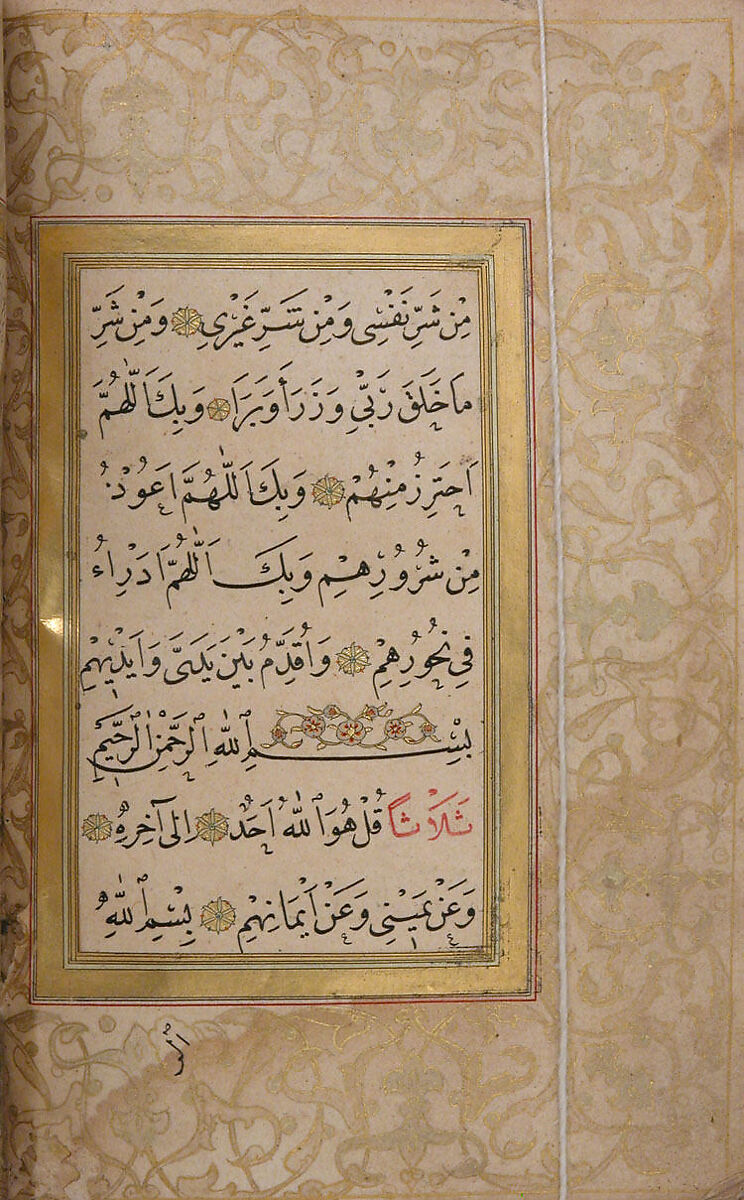 مِنْ شَرِّ نَفْسِى وَمِنْ شَرِّ غَيْرِى وَمِنْ شَرِّ
مَا خَلَقَ رَبِّى وَذَرَأَ وَبَرَأَ وَبِكَ اَللّٰهُمَّ
اَحْتَرِزُ مِنْهُمْ وَبِكَ اَللّٰهُمَّ اَعُوذُ
مِنْ شُرُورِهِمْ وَبِكَ اَللّٰهُمَّ اَدْرَاءُ
فِى نُحُورِهِمْ وَاُقَدِّمُ بَيْنَ يَدَىَّ وَاَيْدِيْهِمْ
بِسْمِ ٱللّٰهِ ٱلرَّحْمٰنِ ٱلرَّحِيْمِ
ثَلَاثًا قُلْ هُوَ ٱللّٰهُ اَحَدٌ اِلٰى آخِرِهِ
وَعَنْ يَمِيْنِى وَعَنْ اَيْمَانِهِمْ بِسْمِ ٱللّٰهِ